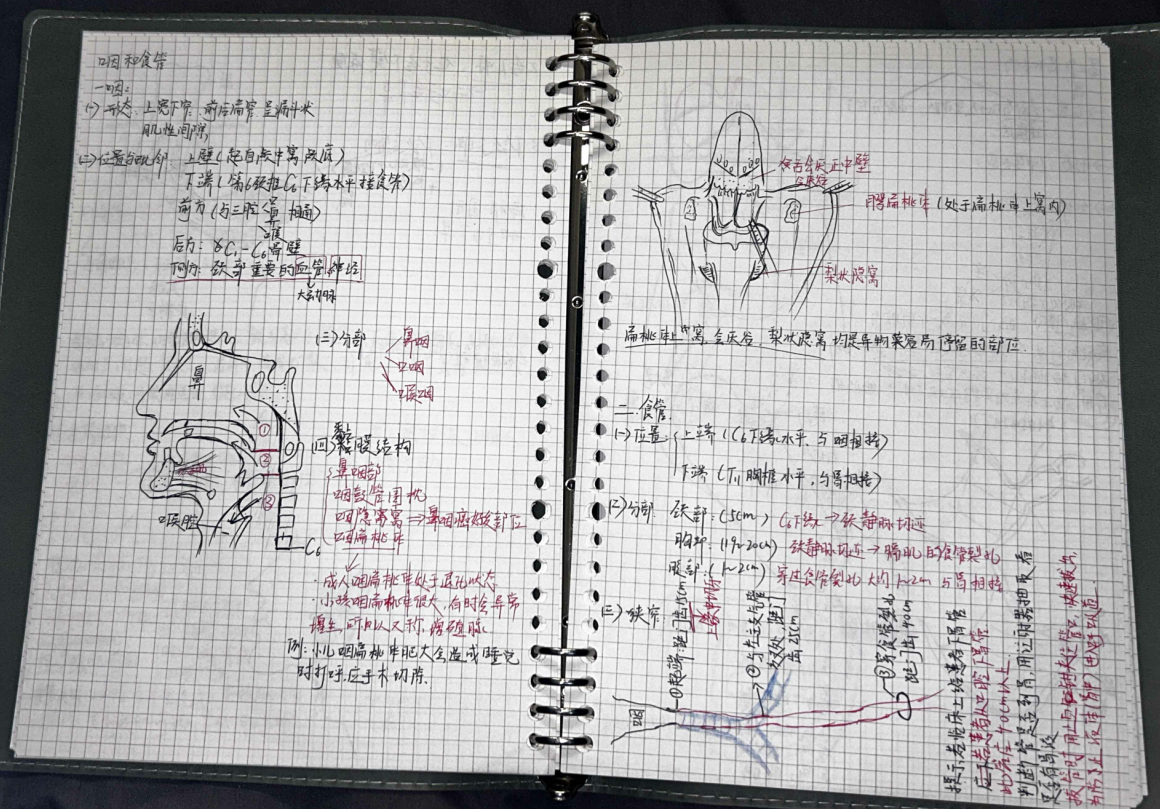 咽和食管
一.咽:
(一)形态: 上宽下窄, 前后扁窄, 呈漏斗状
肌性间隙,
(二)位置与毗邻: 上壁(起自颅中窝颅底)
下端(第6颈椎C₆下缘水平接食管)
前方(与三腔 鼻 相通)
口
喉
后方: C₁-C₆骨壁
侧方: 颈部重要的血管 神经
大动脉
鼻
(三)分部
鼻咽
口咽
喉咽
①
②
③
喉腔
C₆
(四)黏膜结构
鼻咽部
咽鼓管圆枕
咽隐窝 → 鼻咽癌好发部位
咽扁桃体
·成人咽扁桃体处于退化状态
·小孩咽扁桃体很大, 有时会异常
增生, 所以又称: 增殖腺.
例: 小儿咽扁桃体肥大会造成睡觉
时打呼, 应手术切除.
舌会厌正中壁
会厌谷
腭扁桃体(处于扁桃体上窝内)
梨状隐窝
扁桃体上窝, 会厌谷, 梨状隐窝均是异物菜容易停留的部位.
二.食管.
(一)位置: 上端(C₆下缘水平, 与咽相接)
下端(T₁₁胸椎水平, 与胃相接)
(二)分部 颈部:(5cm) C₆下缘→颈静脉切迹
胸部:(19~20cm) 颈静脉切迹→膈肌的食管裂孔
腹部:(1~2cm) 穿过食管裂孔大约1~2cm与胃相接
(三)狭窄:
①起始: 距门齿15cm
上
②与左主支气管
交叉处 距门
齿25cm
③穿食管裂孔
距门齿40cm
咽
提示: 在临床上给患者下胃管
应下在患者从口腔下胃管
长度在40cm以上
判断管是否到胃, 用注射器抽取看
是否有胃液
拔管时用止血钳夹住管口, 快速拔出
防止液体